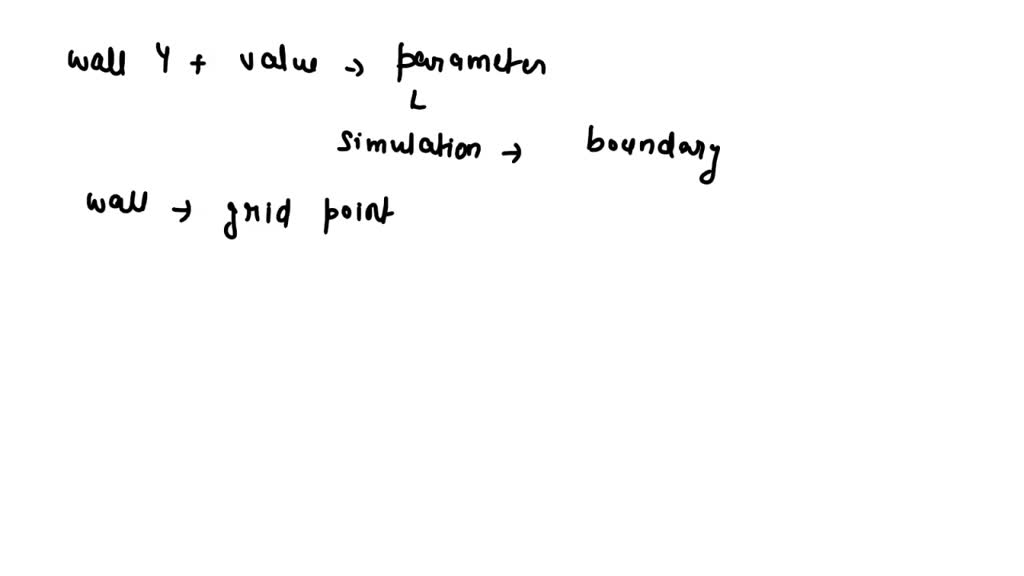 wall Y + value → parameter
L
simulation → boundary
wall → grid point